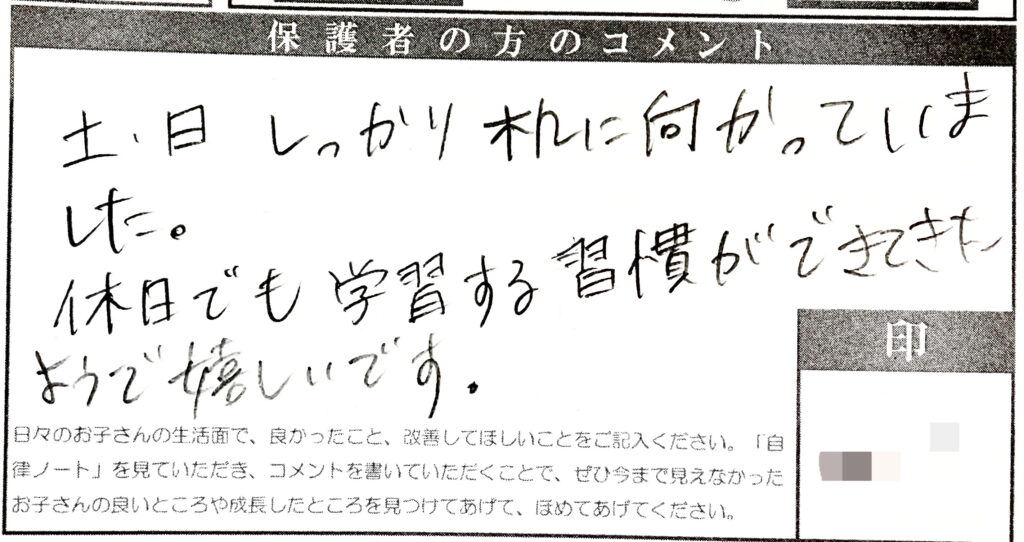 保護者の方のコメント
土・日 しっかり 机に向かっていま
した。
休日でも学習する習慣ができてきた
ようで嬉しいです.
印
日々のお子さんの生活面で、良かったこと、改善してほしいことをご記入ください。「自
律ノート」を見ていただき、コメントを書いていただくことで、ぜひ今まで見えなかった
お子さんの良いところや成長したところを見つけてあげて、ほめてあげてください。